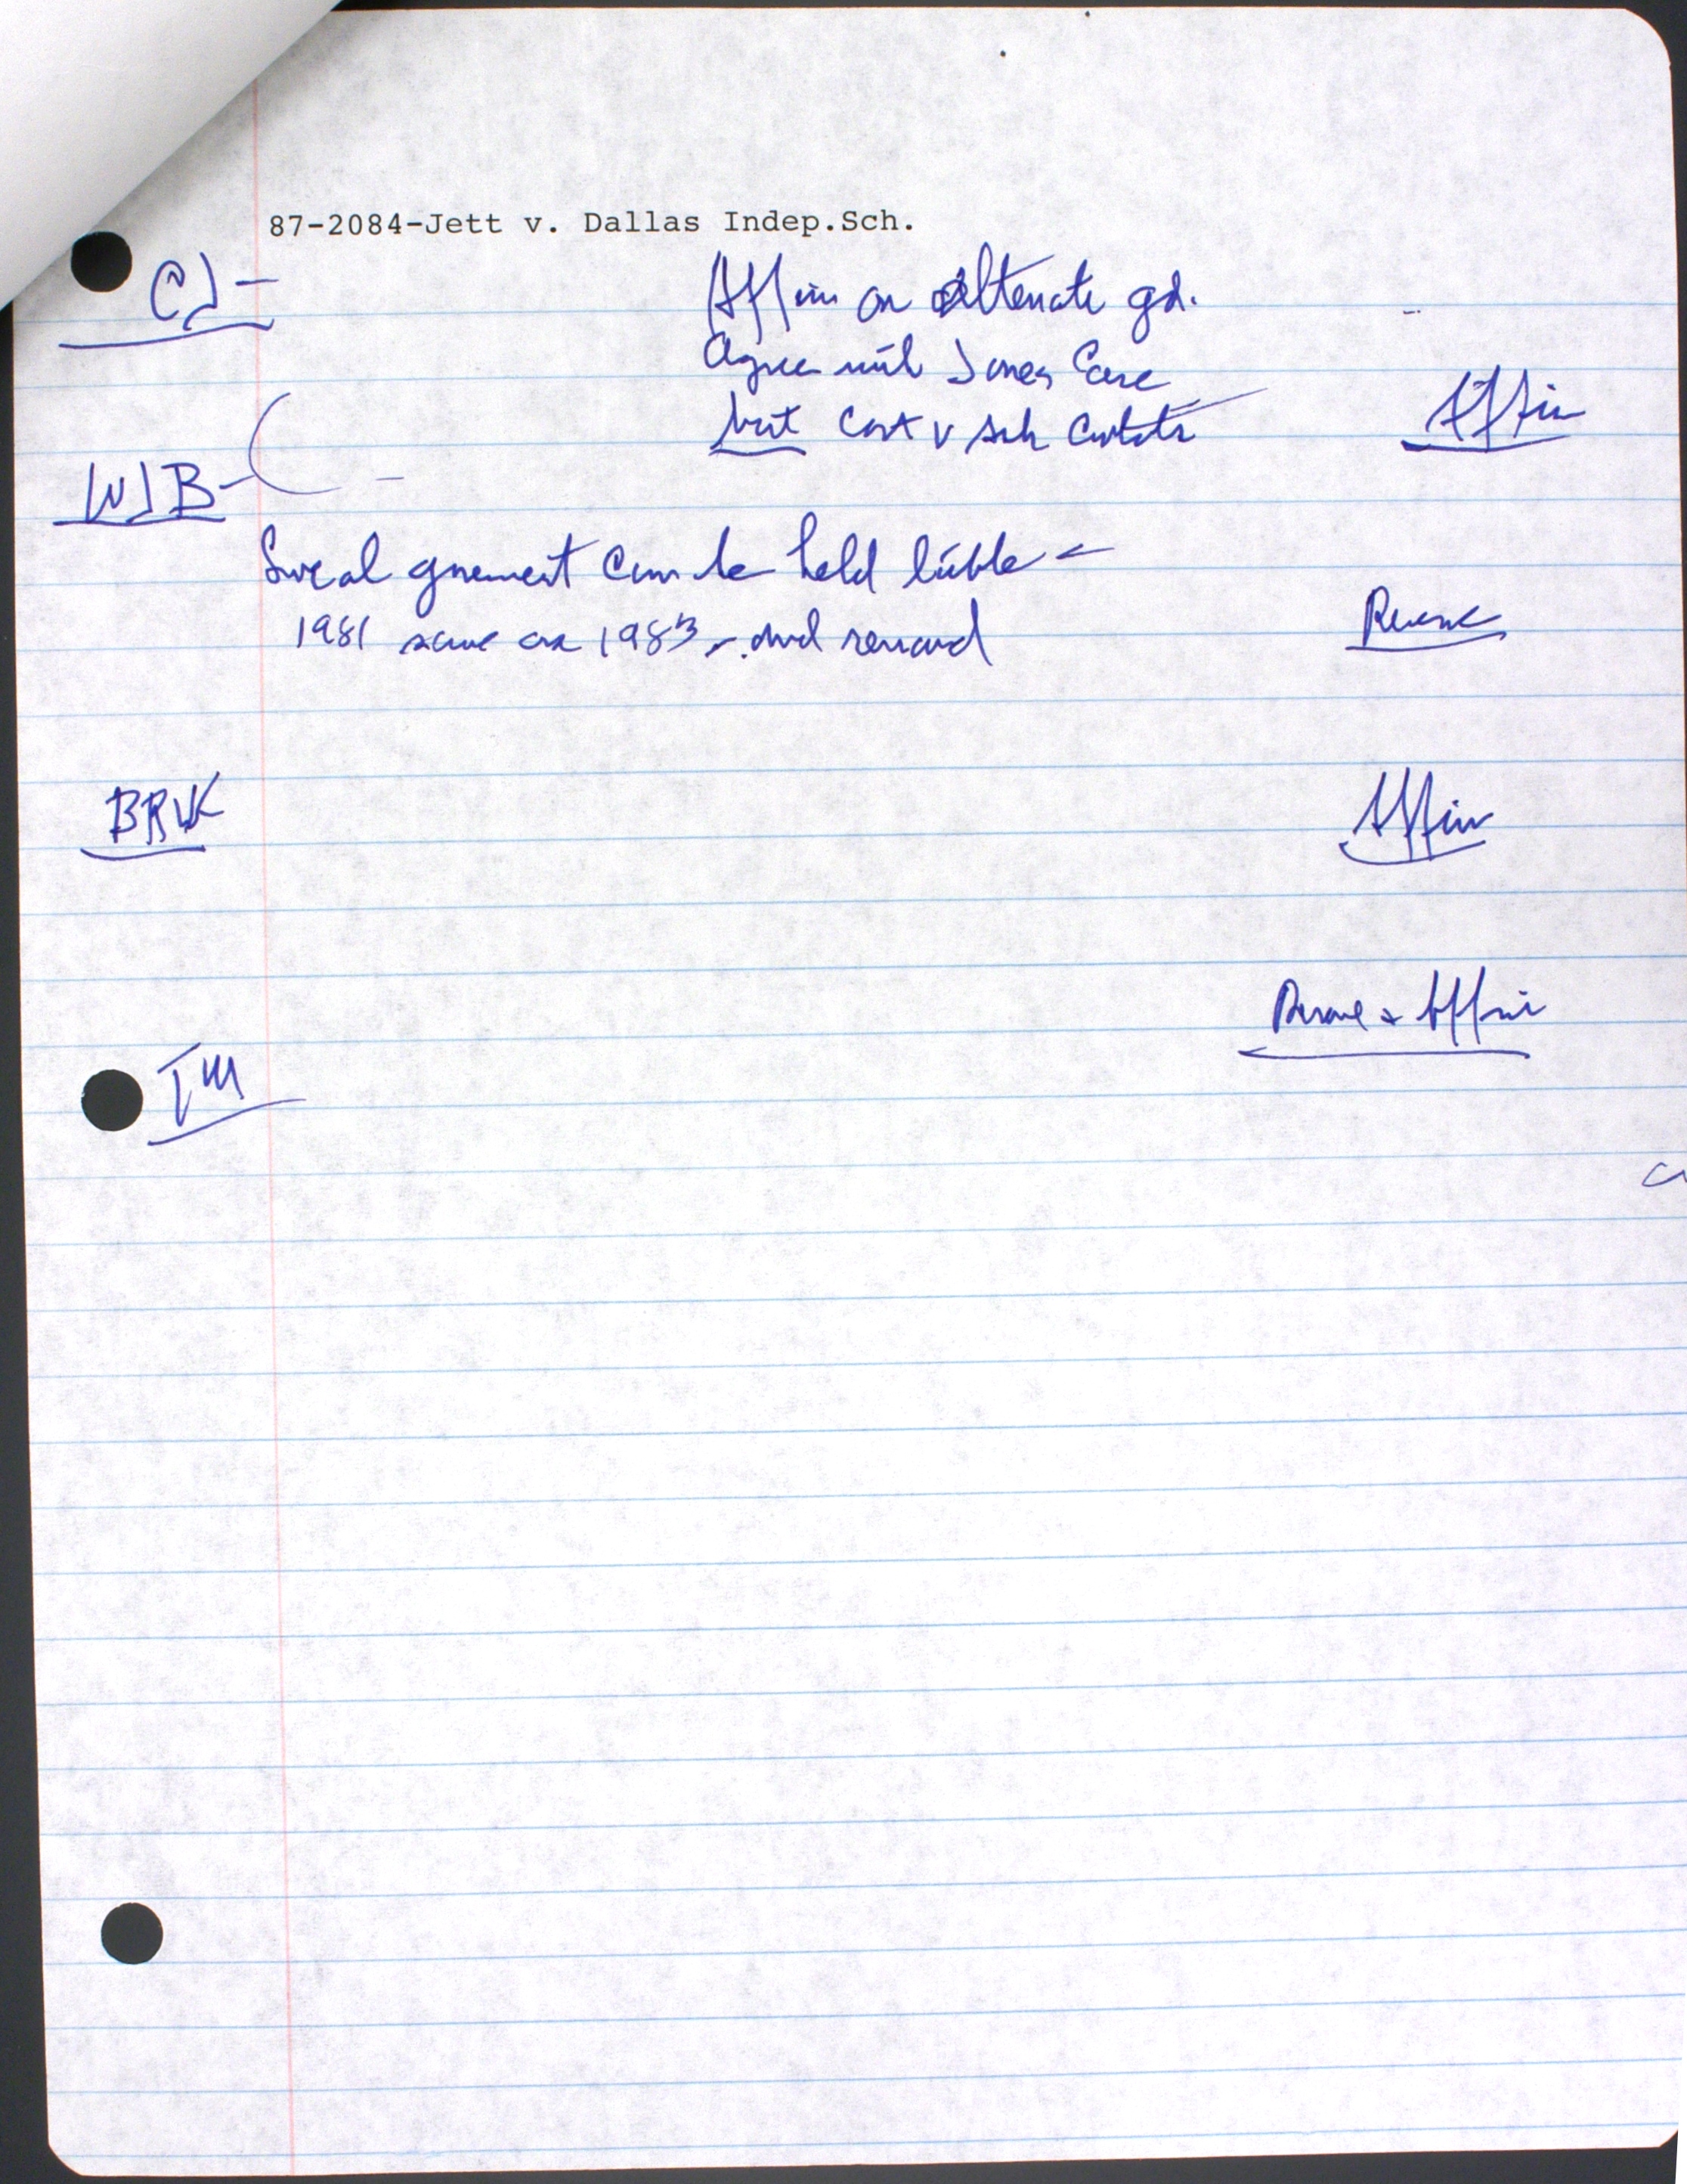 87-2084-Jett v. Dallas Indep.Sch.
CJ -
Affirm on alternate gd.
Agree with Jones Case
but Cort v Ash
Affirm
WJB -
Local government can be held liable -
1981 same as 1983 - and remand
Reverse
BRW
Affirm
Reverse & Affirm
TM